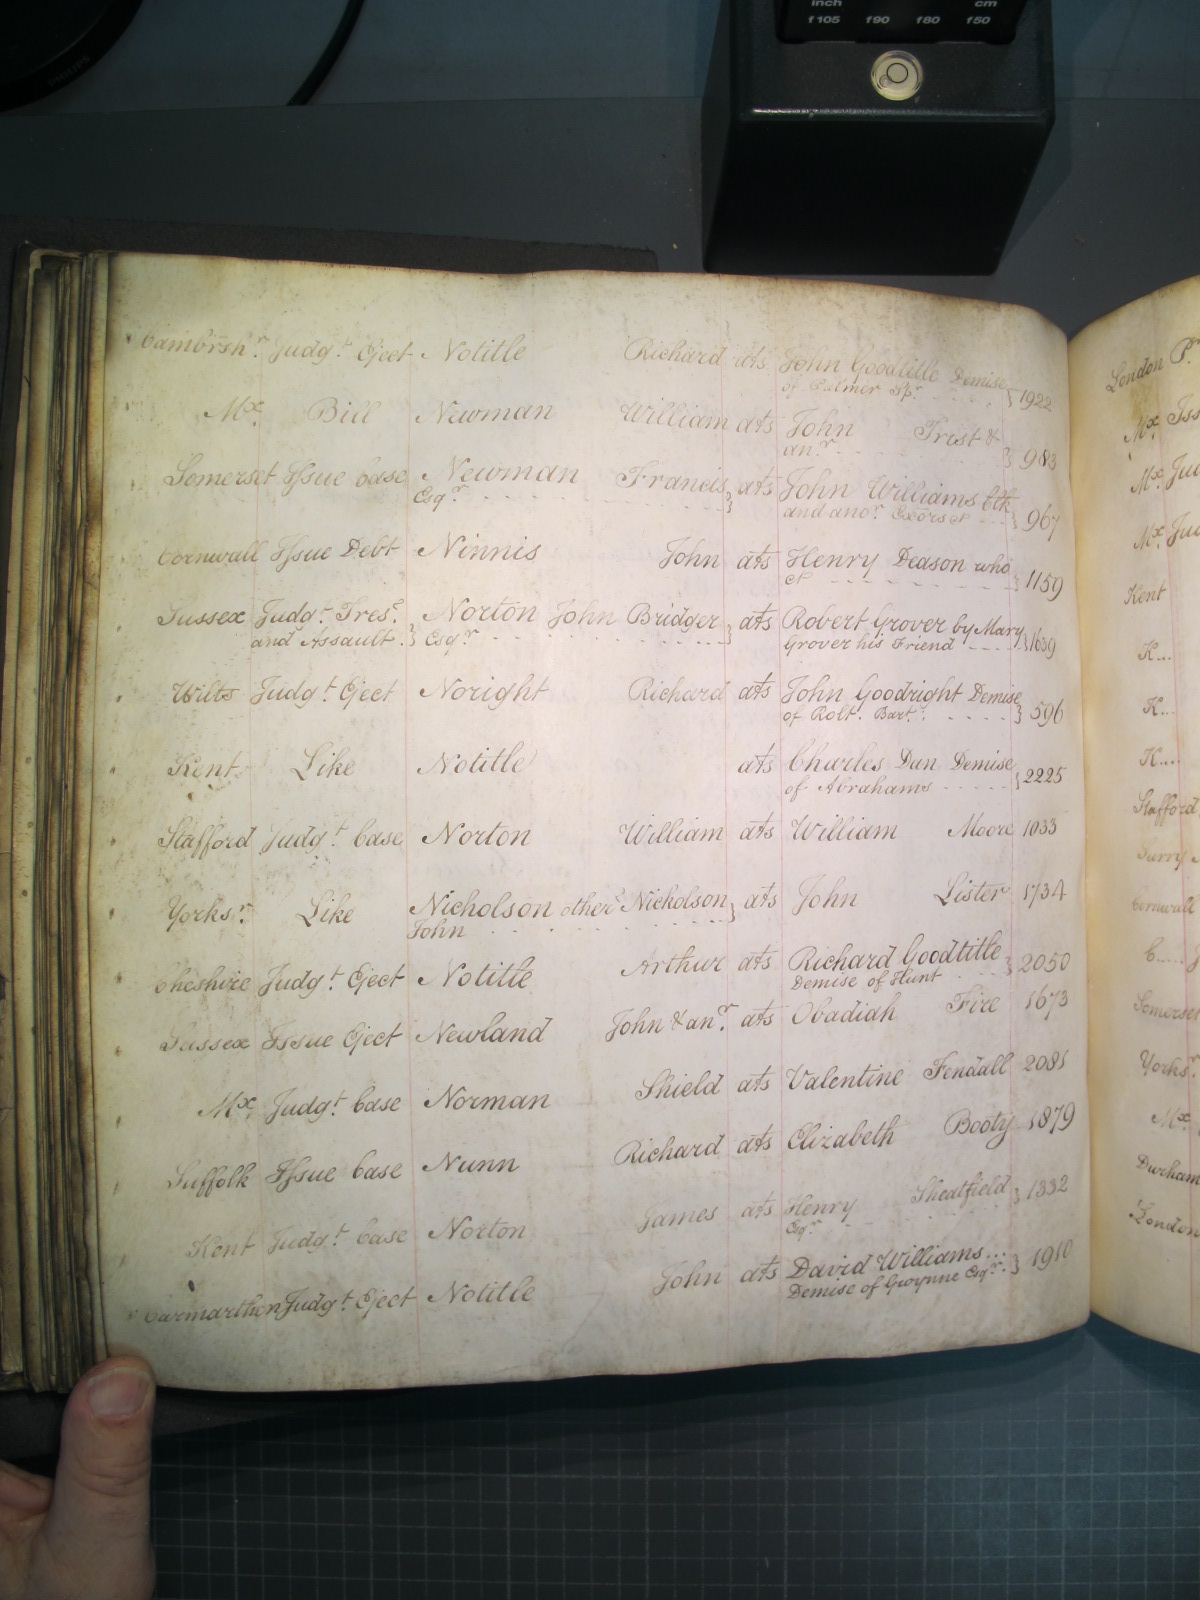 inch cm
f105 f90 f80 f50
PHILIPS
Cambrsh.r Judg.t Eject Notitle Richard ats John Goodtitle Demise
of Palmer Sp.r } 1922
Mx. Bill Newman William ats John Frost &
an.r } 983
Somerset Issue Case Newman Francis ats John Williams Clk
Esq.r } and ano.r Exors et } 967
Cornwall Issue Debt Ninnis John ats Henry Deason who
et } 1159
Sussex Judg.t Tres.s Norton John Bridger ats Robert Grover by Mary
and Assault } Esq.r } Grover his Friend } 1639
Wilts Judg.t Eject Noright Richard ats John Goodright Demise
of Rolt. Bart. } 596
Kent Like Notitle ats Charles Dun Demise
of Abrahams } 2225
Stafford Judg.t Case Norton William ats William Moore 1033
Yorks.r Like Nicholson other.s Nicholson } ats John Lister 1734
John
Cheshire Judg.t Eject Notitle Arthur ats Richard Goodtitle
Demise of Hunt } 2050
Sussex Issue Eject Newland John & an.r ats Obadiah Fire 1673
Mx Judg.t Case Norman Shield ats Valentine Fendall 2081
Suffolk Issue Case Nunn Richard ats Elizabeth Booty 1879
Kent Judg.t Case Norton James ats Henry Sheatfield
Esq.r } 1332
Carmarthen Judg.t Eject Notitle John ats David Williams...
Demise of Gwynne Esq.r } 1910
London
Mx. Iss
Mx. Jud
Mx. Jud
Kent
K...
K...
K....
Stafford
Surry
Cornwall
C.....
Somerset
Yorks.r
Mx
Durham
London